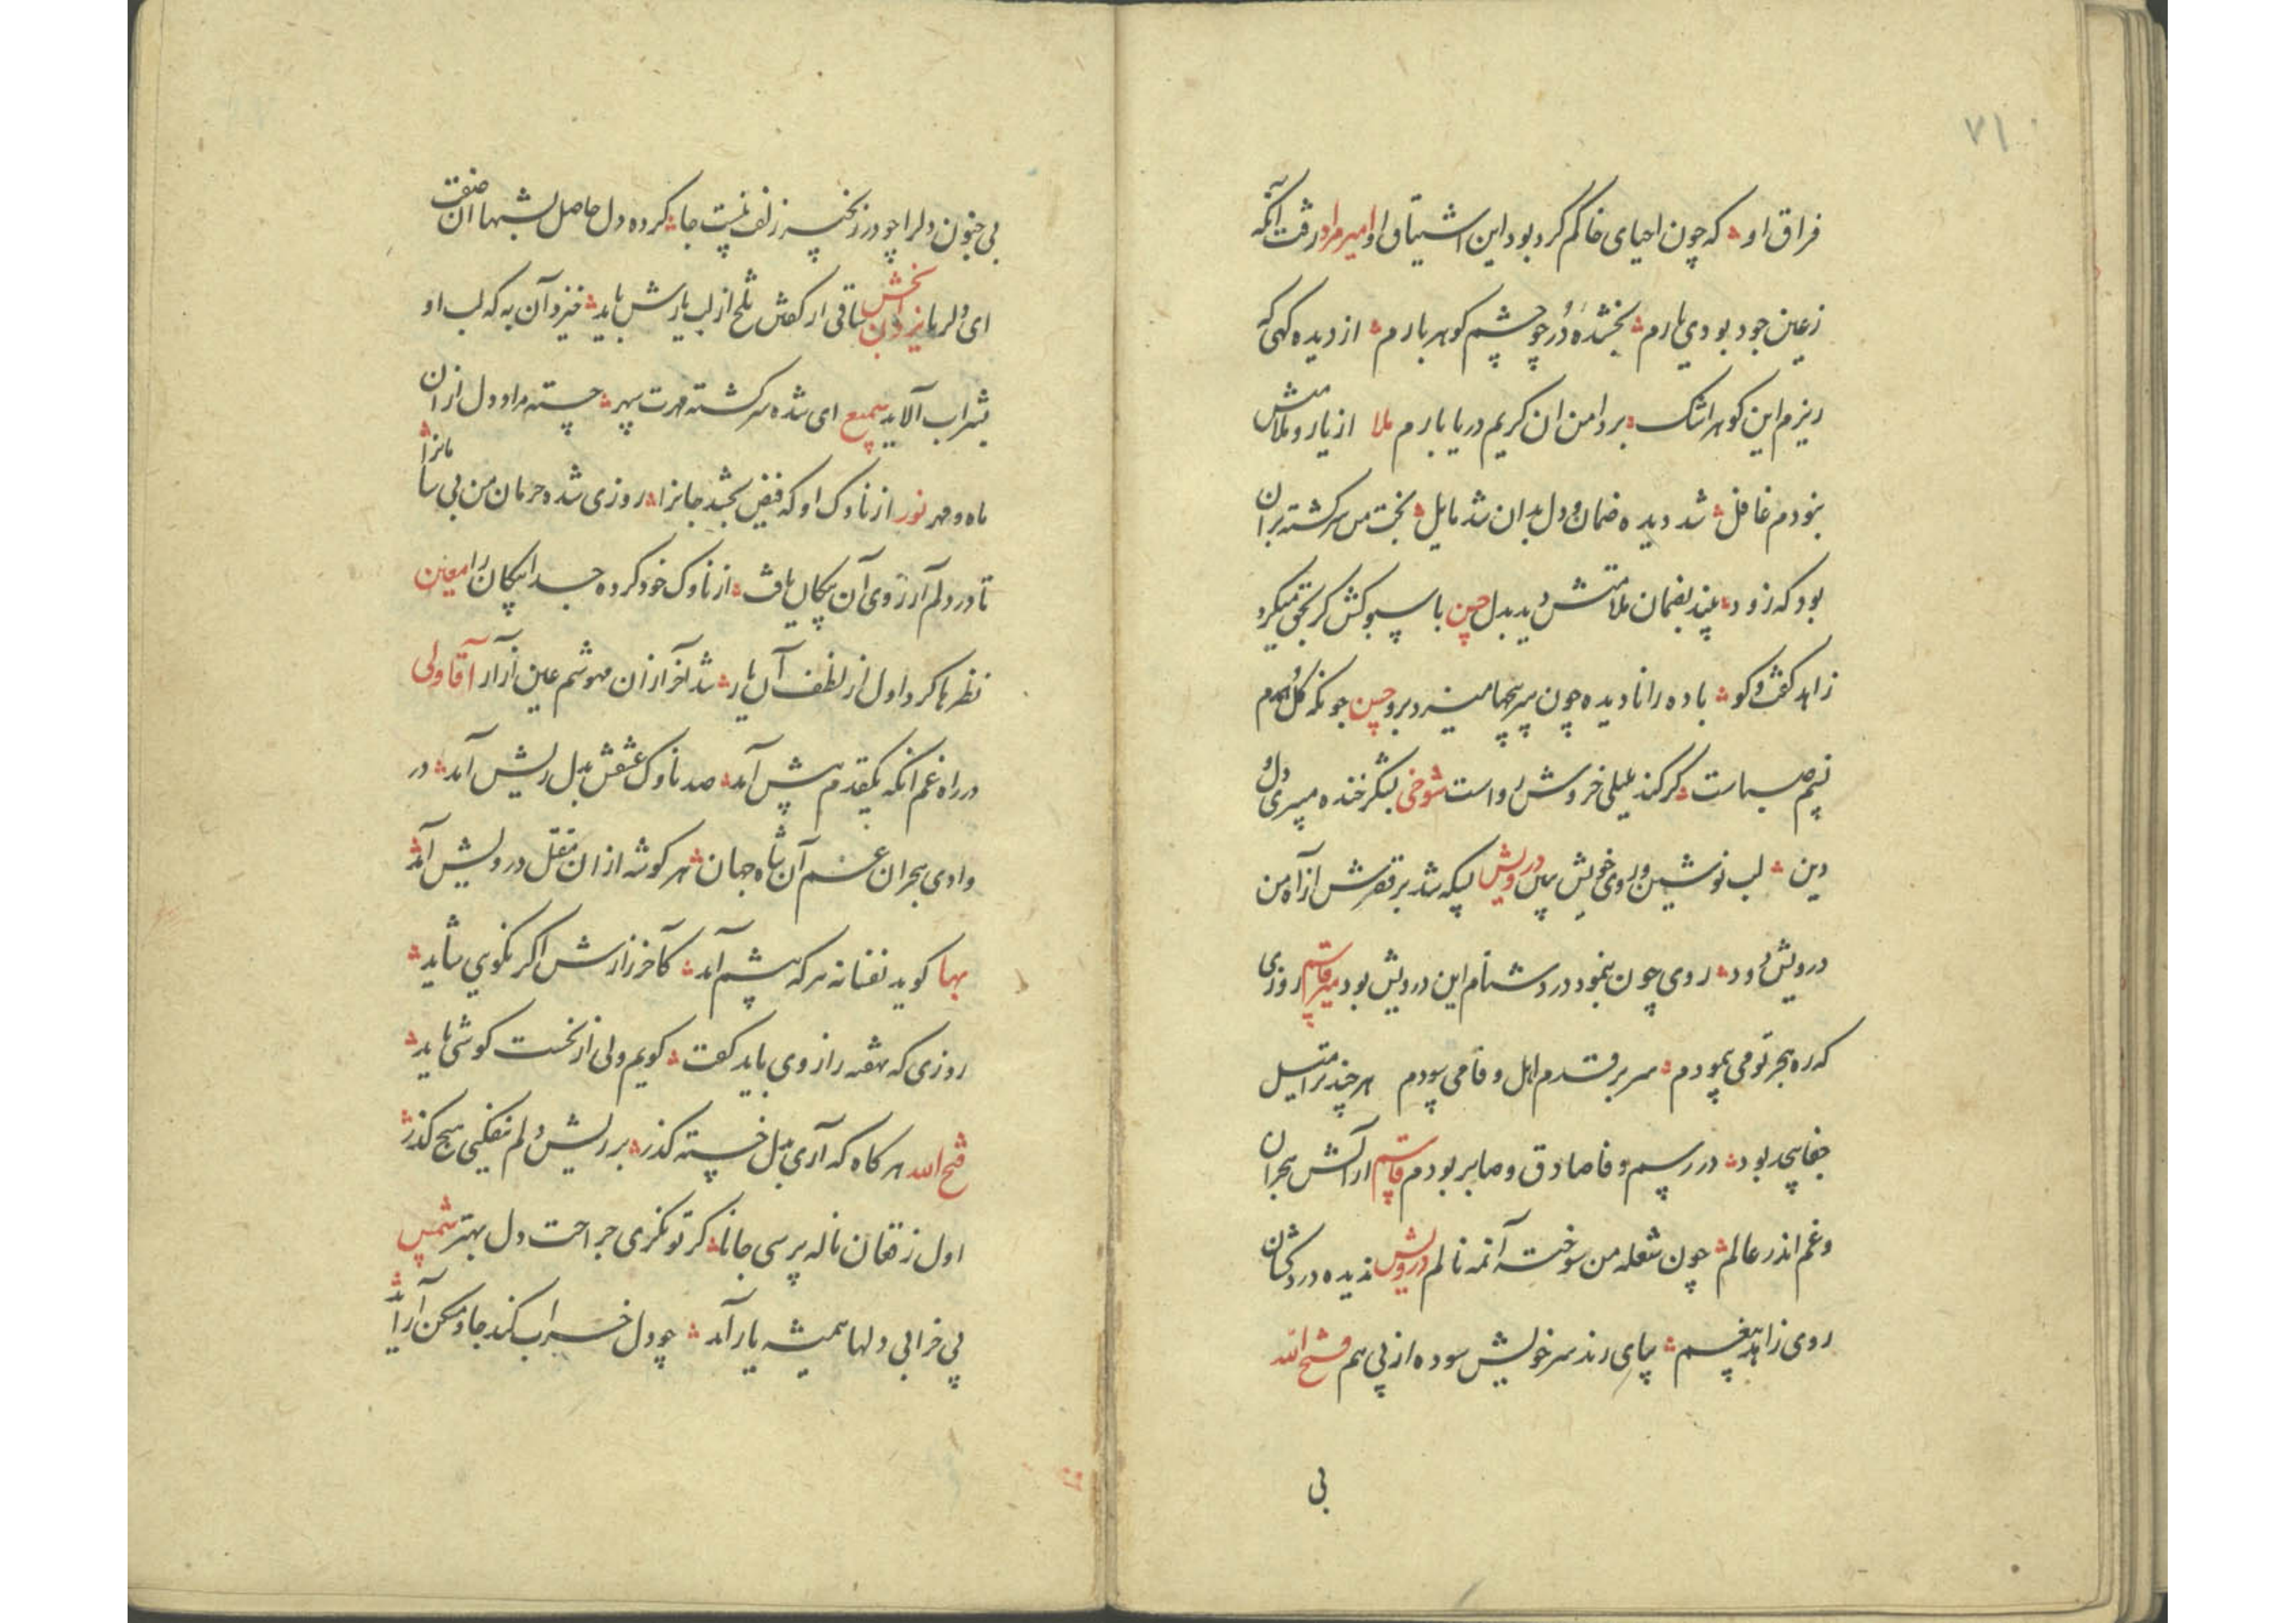 ۷۱
فراق او ؞ که چون احیای خاکم کرد بود این اشتیاق او امیر مراد رفت آنکه
زعین جود بودی یارم ؞ بخشنده دُر چو چشم کوهر بارم ؞ از دیده کهی که
ریزم این کوهر اشک ؞ بر دامن ان کریم دریا بارم ملا از یار و ملامتش
نبودم غافل ؞ شد دیده ضمان و دل بدان شد مایل ؞ بخت من سرکشته بران
بود که زود ؞ بیند بضمان ملامتش دید بدل حسن با سبوکش کر تجی میکرد
زاهد کفت و کو ؞ باده را نادیده چون سر میزد برو حسن چونکه کل همدم
نسیم صباست ؞ کر کند بلبلی خروش رواست شوخی بشکر خنده میبری دل و
دین ؞ لب نوشین و روی خویش ببین درویش بسکه شد بر قصرش از آه من
درویش دود ؞ روی چون بنمود در دشنام این درویش بود میر قاسم روزی
که ره هجر تو می پیمودم ؞ سر بر قدم اهل وفا می سودم هر چند ترا میل
جفا بیحد بود ؞ در رسم وفا صادق و صابر بودم قاسم از آتش هجران
و غم اندر عالم ؞ چون شعله من سوخته نالم درویش ندیده دردکشان
روی زاهد بیغم ؞ بپای رند سر خویش سوده از پی هم فتح الله
بی
بی جنون دلرا چو در زنجیر زلف تست جا ؞ کرده دل حاصل بشبها ان صفت
ای دلربا یزدان بخش ساقی ار کفش تلخ از لب یارش باید ؞ خیزد آن به که لب او
بشراب آلاید سمیع ای شده سرکشته مهرت سپهر ؞ جسته مراد دل از ان
ماه و مهر نور از ناوک او که فیض بخشد جانرا ؞ روزی شده حرمان من بی سامانرا
تا در دلم آرزوی آن پیکان یافت ؞ از ناوک خود کرده جدا پیکان را معین
نظرها کرد اول از لطف آن یار ؞ شد آخر از ان مهوشم عین آزار آقا ولی
در راه غم انکه یکقدم پیش آمد ؞ صد ناوک عشقش بدل ریش آمد ؞ در
وادی هجران غم آن شاه جهان ؞ هر کوشه از ان مقتل درویش آمد
بها کوید نفسانه هر که پیشم آمد ؞ کآخر زارش اکر نکویی شاید ؞
روزی که نهفته راز وی باید کفت ؞ کویم ولی از نخست کوشی باید ؞
فتح الله هر کاه که آری بدل خسته کذر ؞ بر ریش دلم نفکنی هیچ کذر
اول ز فغان ناله پرسی جانا ؞ کر تو نکری جراحت دل بهتر شمس
پی خرابی دلها همیشه یار آمد ؞ چو دل خراب کند جا و مسکن آراید